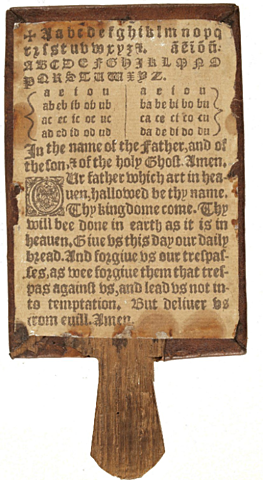 ✠ Aabcdefghiklmnopq
rꝛſstuvwxyz
ABCDEFGHIKLMNO
PQRSTUWXYZ.
a e i o u a e i o u
ab eb ib ob ub ba be bi bo bu
ac ec ic oc uc ca ce ci co cu
ad ed id od ud da de di do du
In the name of the Father, and of
the son, & of the holy Ghost. Amen.
Our father which art in hea-
uen, hallowed be thy name.
Thy kingdome come. Thy
will bee done in earth as it is in
heauen. Giue vs this day our daily
bread. And forgiue vs our trespas-
ses, as wee forgiue them that tres-
pas against vs, and lead vs not in-
to temptation. But deliuer vs
from euill. Amen.